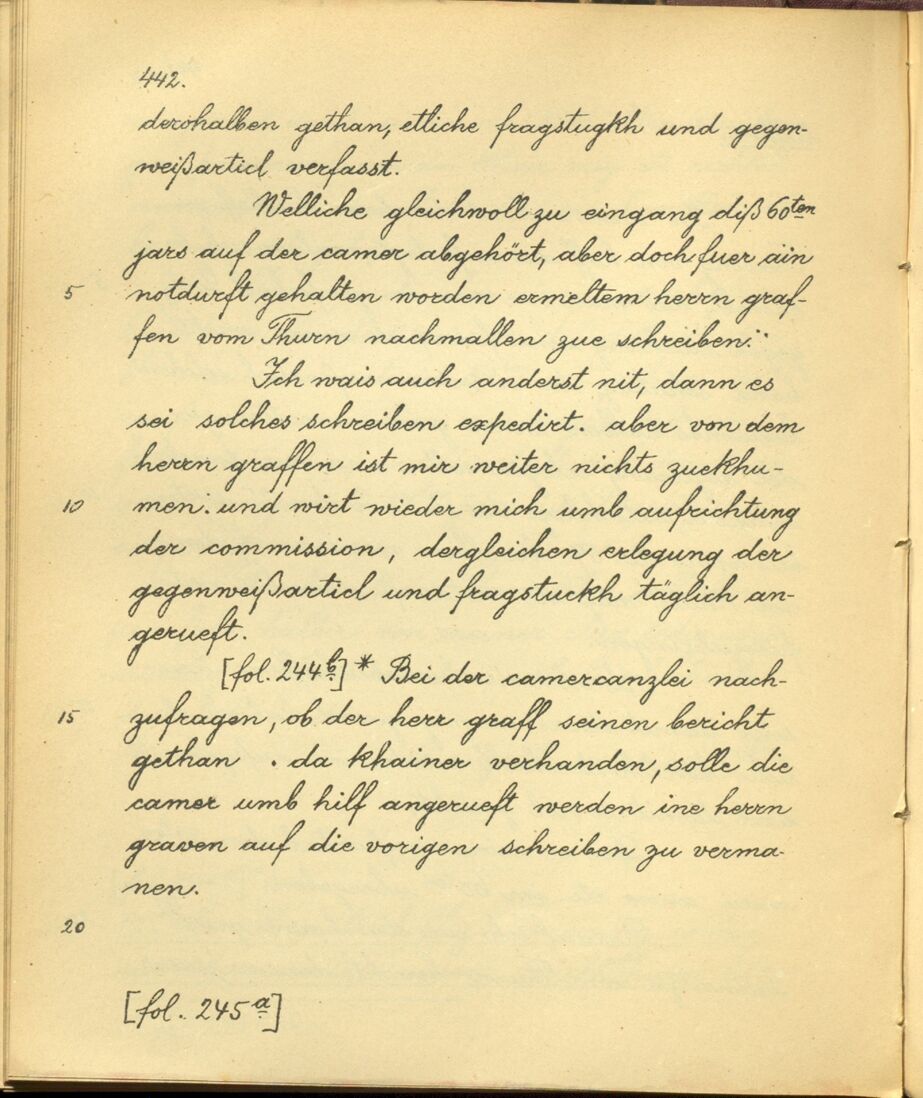 442.
derohalben gethan, etliche fragstugkh und gegen-
weißarticl verfasst.
Welliche gleichwoll zu eingang diß 60ten
jars auf der camer abgehört, aber doch fuer ain
5 notdurft gehalten worden ermeltem herrn graf-
fen vom Thurn nachmallen zue schreiben."
Ich wais auch anderst nit, dann es
sei solches schreiben expedirt. aber von dem
herrn graffen ist mir weiter nichts zuekhu-
10 men. und wirt wieder mich umb aufrichtung
der commission, dergleichen erlegung der
gegenweißarticl und fragstuckh täglich an-
gerueft.
[fol. 244b] * Bei der camercanzlei nach-
15 zufragen, ob der herr graff seinen bericht
gethan . da khainer verhanden, solle die
camer umb hilf angerueft werden ine herrn
graven auf die vorigen schreiben zu verma-
nen.
20
[fol. 245a]